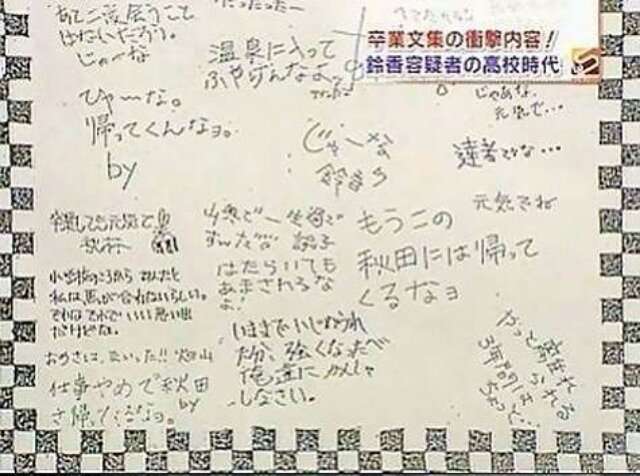 あと二度会うこと
はないだろう。
じゃーな
だったったー
卒業文集の衝撃内容!
鈴香容疑者の高校時代
温泉に入って
ふやけんなよ。
じゃあな
元気で…
ひゃーな。
帰ってくんなョ。
by
じゃーな
鈴香
達者でな…
元気でね
卒業しても元気で
秋田には帰って
もうこの
くるなョ
はたらいても
あまされるな
よ!
小学校のころから あんたと
私は、馬が合わないらしい。
それはそれでいい思い出
だけどな。
いままでいじめられ
た分、強くなったべ
俺達にかんしゃ
しなさい。
やっと離れ
られる
3年間は
ちょっと…
仕事やめて秋田
さ帰ってくるなョ。
by